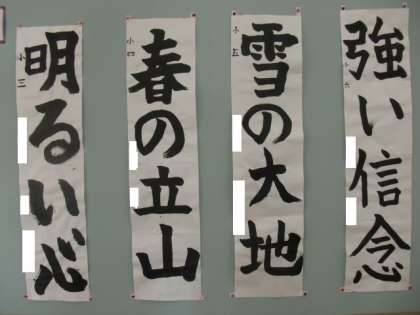 強い信念
小六
雪の大地
小五
春の立山
小四
明るい心
小三